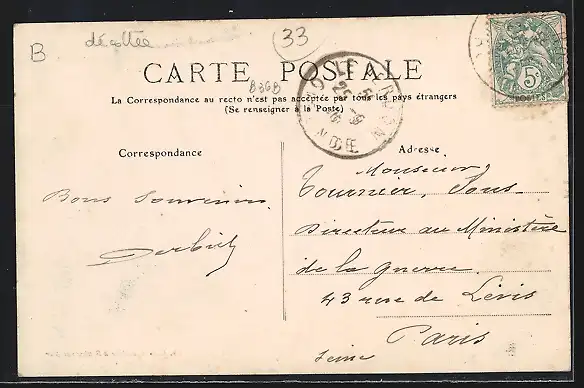 B
décollée
33
CARTE POSTALE
B36B
La Correspondance au recto n'est pas acceptée par tous les pays étrangers
(Se renseigner à la Poste)
5c
POSTES
Correspondance
Bons Souvenirs
Adresse
Monsieur
Tournier, Sous-
Directeur au Ministère
de la guerre
43 rue de Lévis
Paris
Seine